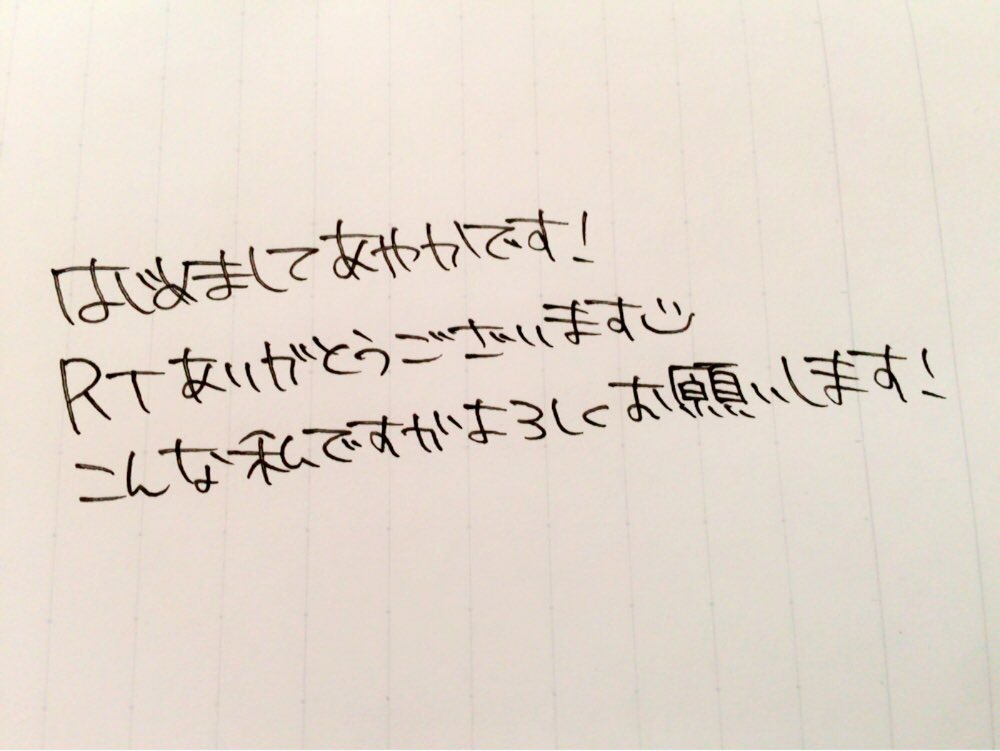 はじめましてあやかです!
RTありがとうございます
こんな私ですがよろしくお願いします!